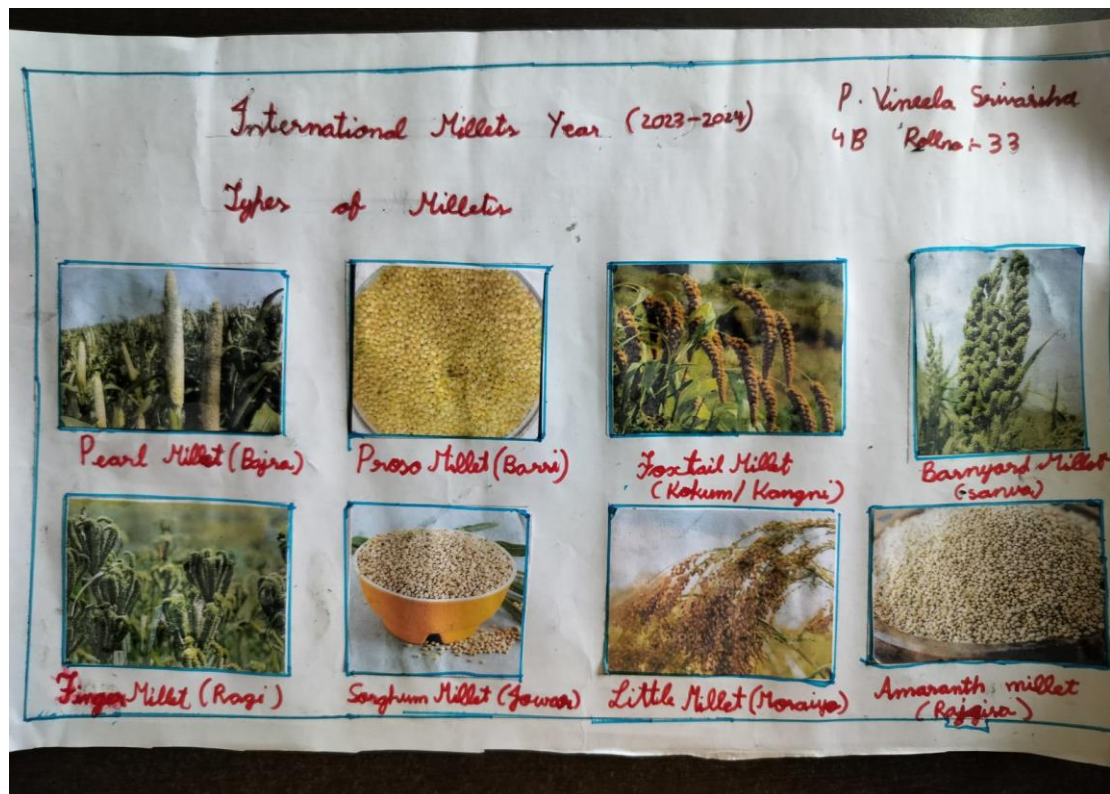 International Millets Year (2023-2024)
P. Vineela Srivarsha
4B Rollno:- 33
Types of Millets
Pearl Millet (Bajra)
Proso Millet (Barri)
Foxtail Millet
(Kokum/Kangni)
Barnyard Millet
(sanva)
Finger Millet (Ragi)
Sorghum Millet (Jowar)
Little Millet (Moraiyo)
Amaranth millet
(Rajgira)